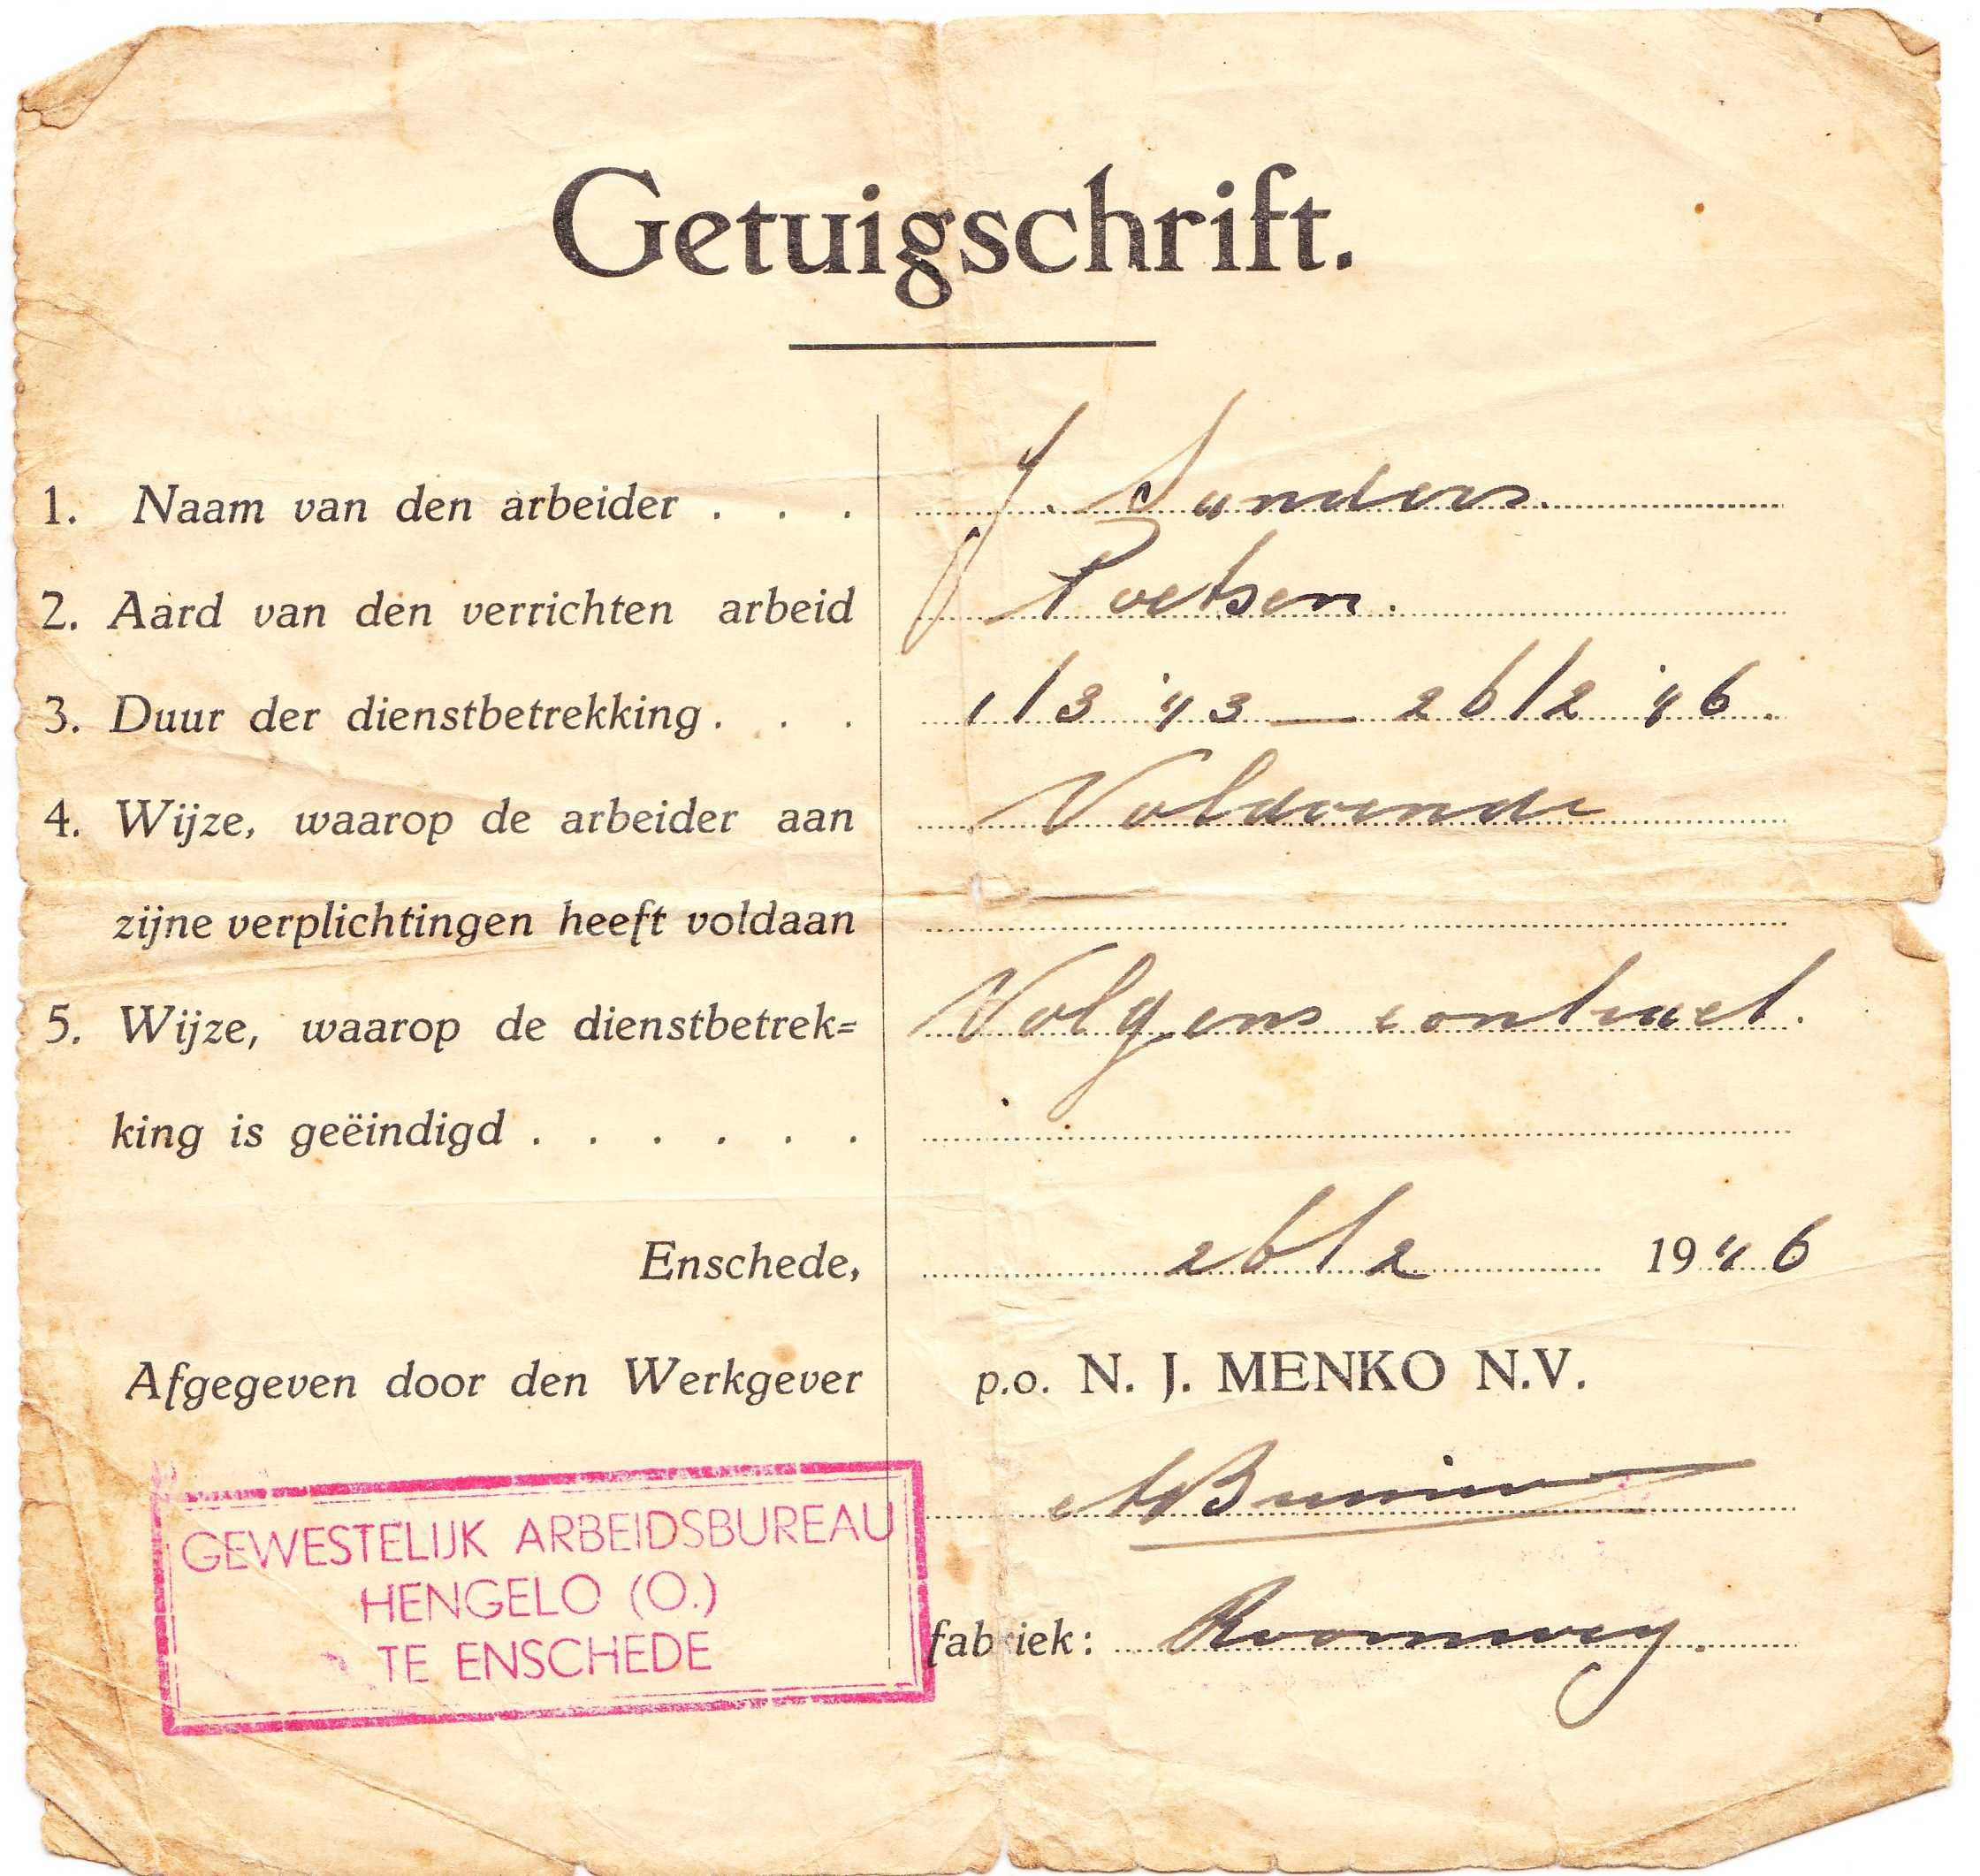 Getuigschrift.
1. Naam van den arbeider . . . J. Sanders.
2. Aard van den verrichten arbeid Poetsen.
3. Duur der dienstbetrekking. . . 1/3 '43 — 26/2 '46.
4. Wijze, waarop de arbeider aan Voldoende
zijne verplichtingen heeft voldaan
5. Wijze, waarop de dienstbetrek= Volgens contract.
king is geëindigd . . . . . .
Enschede, 26/2 1946
Afgegeven door den Werkgever p.o. N. J. MENKO N.V.
GEWESTELIJK ARBEIDSBUREAU
HENGELO (O.)
TE ENSCHEDE
fabriek: Roomweg.